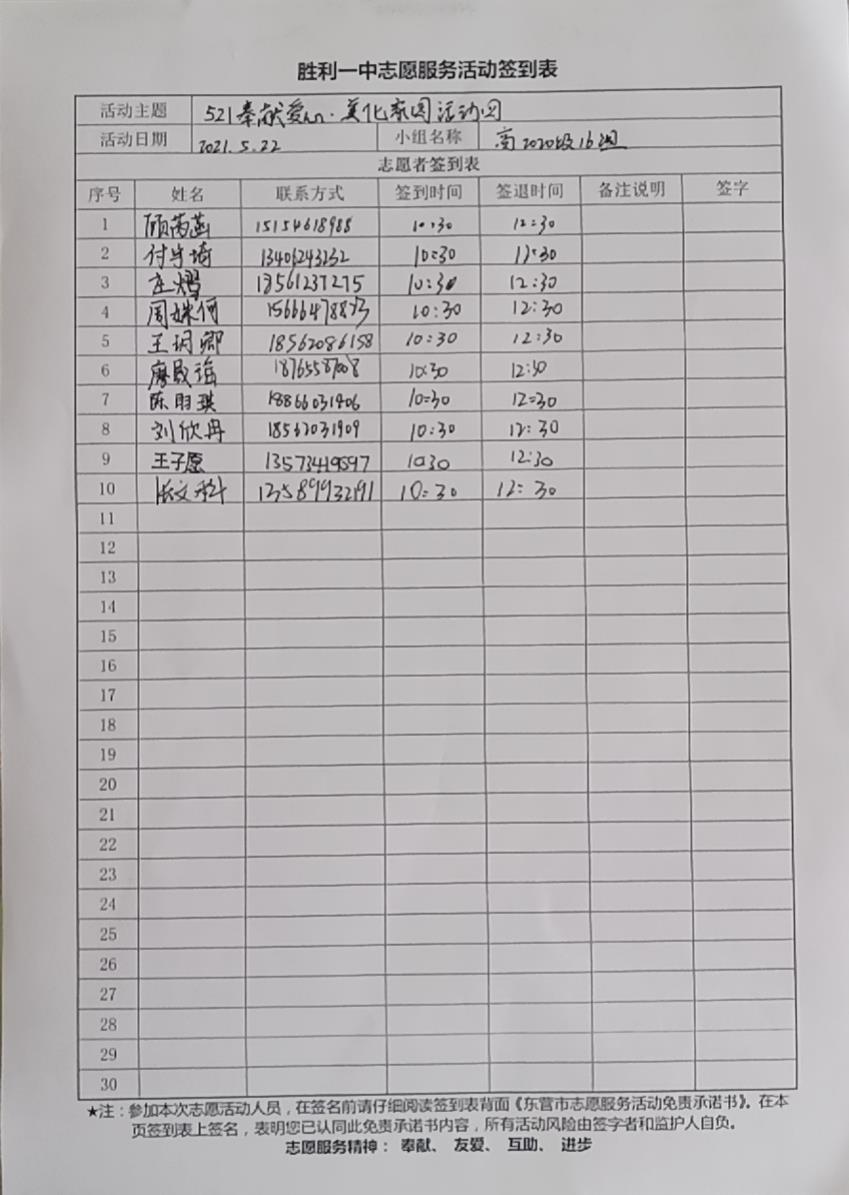 胜利一中志愿服务活动签到表
活动主题 521奉献爱心·美化家园活动
活动日期 2021.5.22 小组名称 高2020级16组
志愿者签到表
序号 姓名 联系方式 签到时间 签退时间 备注说明 签字
1 顾芮菡 15154618988 10:30 12:30
2 13406243232 10:30 12:30
3 庄熠 18561237275 10:30 12:30
4 周姝何 15666478873 10:30 12:30
5 王玥卿 18562086158 10:30 12:30
6 廖晟瑶 18765587008 10:30 12:30
7 陈玥琪 18866031406 10:30 12:30
8 刘欣冉 18562031909 10:30 12:30
9 王子愿 10:30 12:30
10 13589932191 10:30 12:30
11
12
13
14
15
16
17
18
19
20
21
22
23
24
25
26
27
28
29
30
★注：参加本次志愿活动人员，在签名前请仔细阅读签到表背面《东营市志愿服务活动免责承诺书》。在本
页签到表上签名，表明您已认同此免责承诺书内容，所有活动风险由签字者和监护人自负。
志愿服务精神： 奉献、 友爱、 互助、 进步